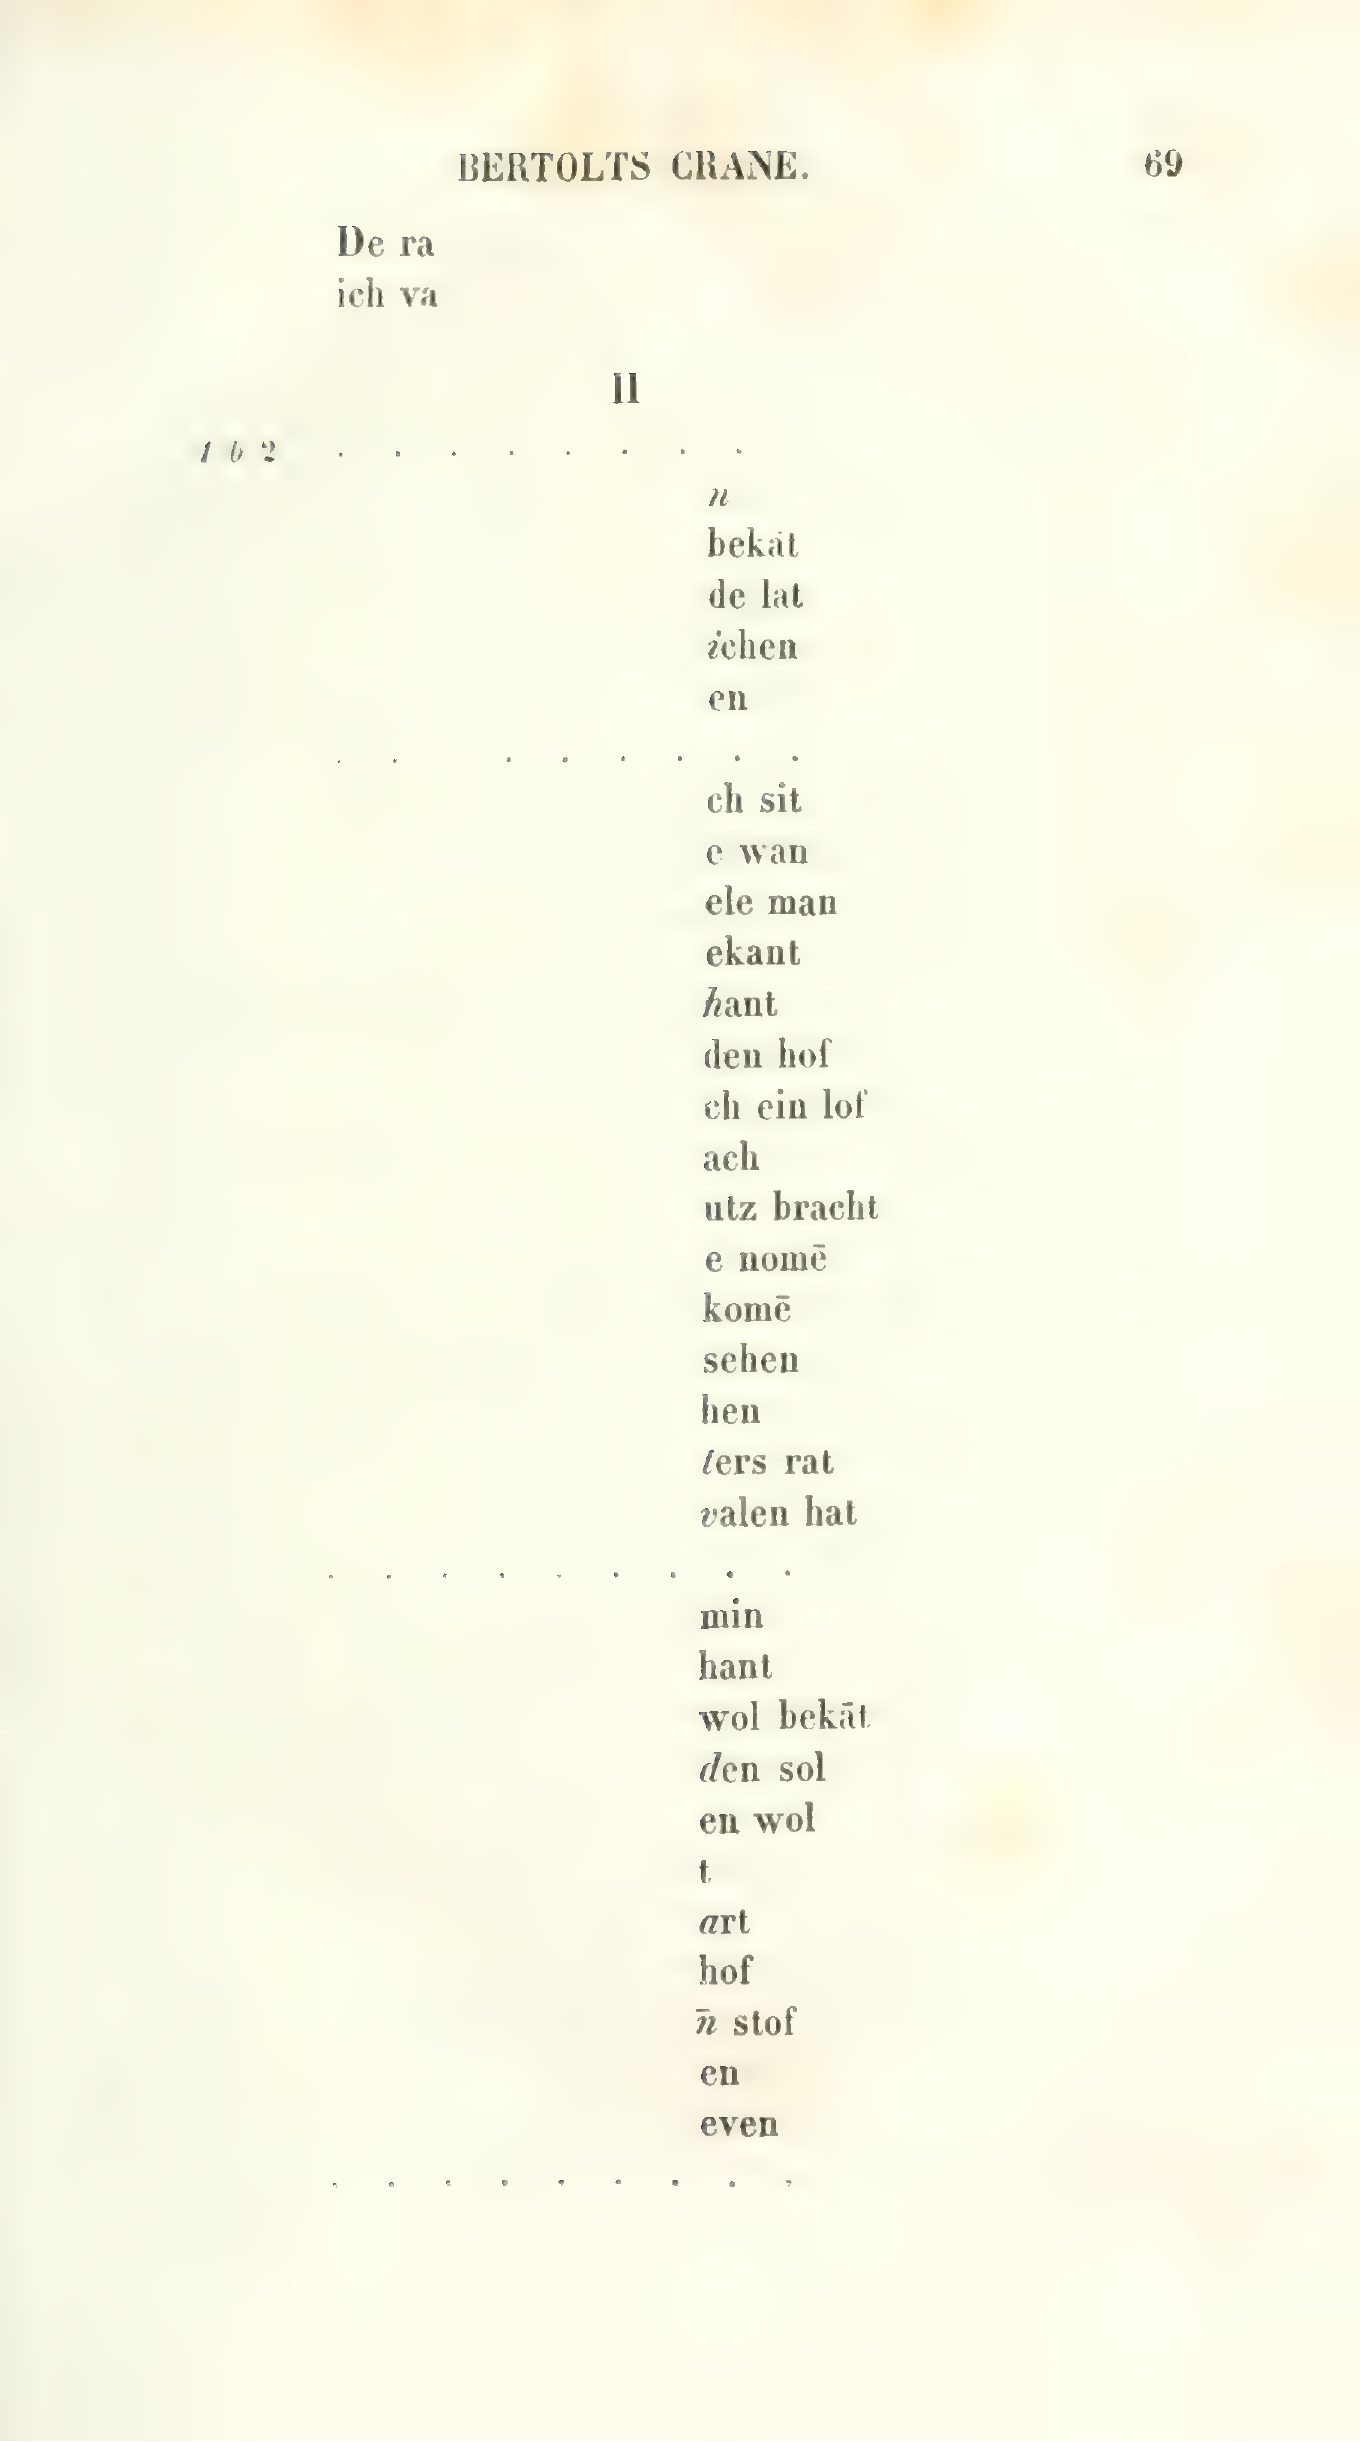 BERTOLTS CRANE. 69
De ra
ich va
II
1 b 2 . . . . . . . .
n
bekāt
de lat
ichen
en
. . . . . . . .
ch sit
e wan
ele man
ekant
hant
den hof
ch ein lof
ach
utz bracht
e nomē
komē
sehen
hen
ters rat
valen hat
. . . . . . . . .
min
hant
wol bekāt
den sol
en wol
t
art
hof
n̄ stof
en
even
. . . . . . . . .